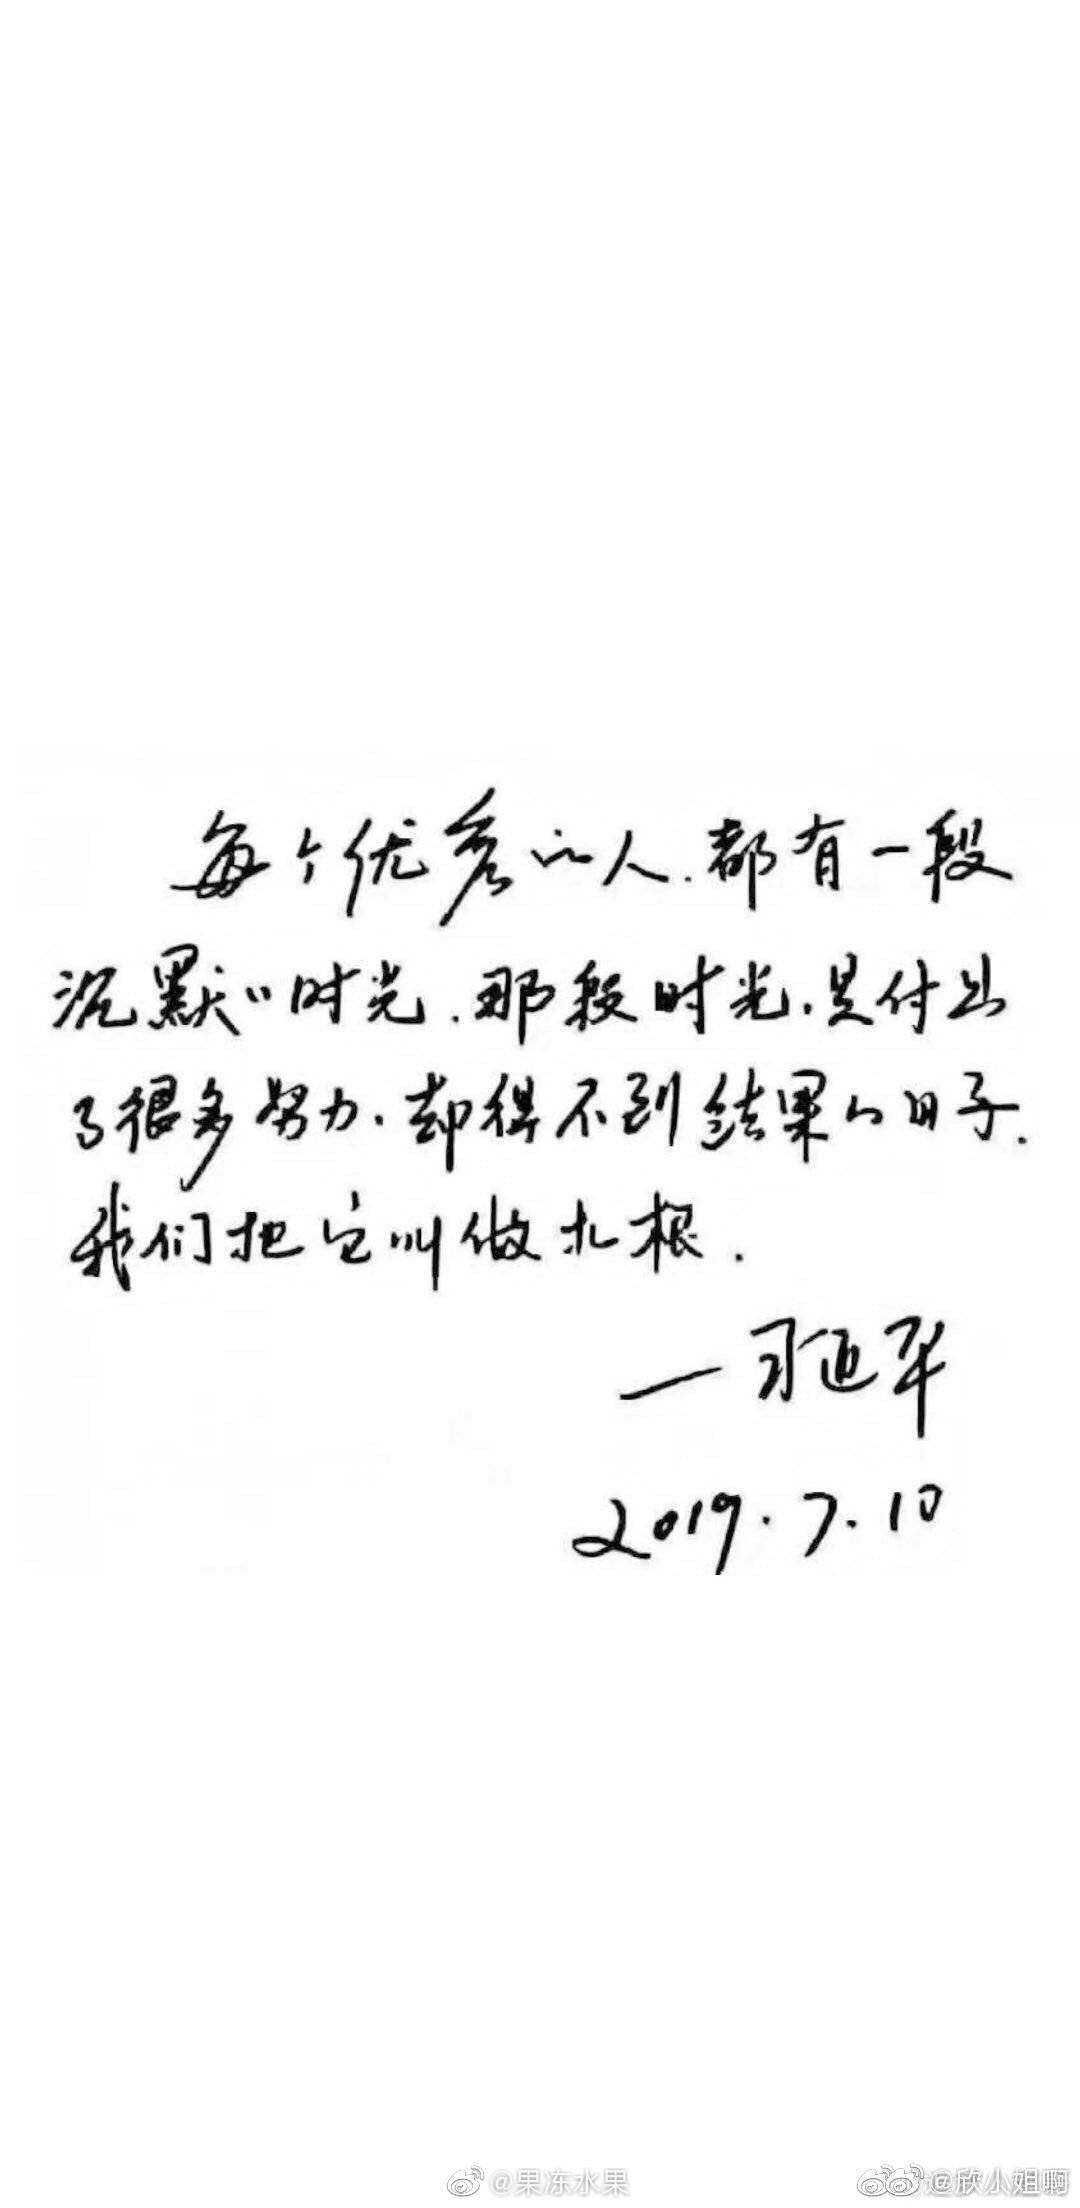 每个优秀的人.都有一段
沉默的时光.那段时光.是付出
了很多努力.却得不到结果的日子.
我们把它叫做扎根.
一习近平
2019.7.10
@果冻水果
@欣小姐啊